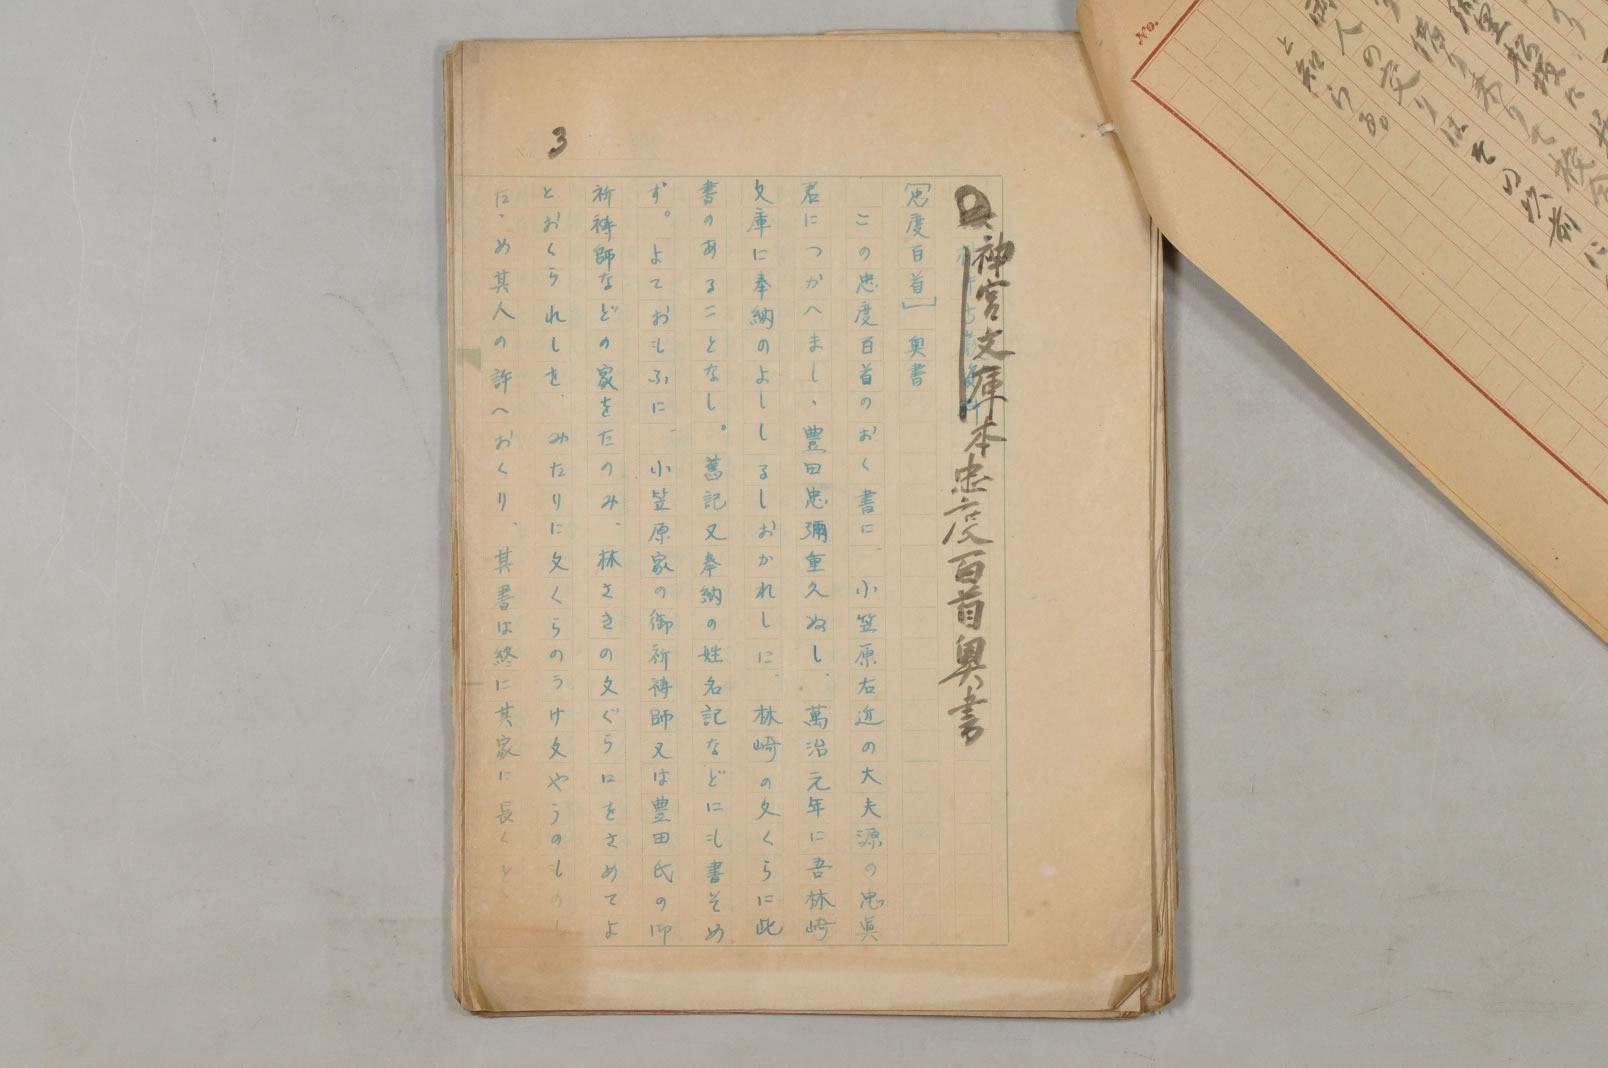 神宮文庫本忠度百首奥書
［忠度百首］　奥書
この忠度百首のおく書に、小笠原右近の大夫源の忠眞
君につかへまし、豊田忠彌重久ぬし、萬治元年に吾林崎
文庫に奉納のよししるしおかれしに、林崎の文くらに此
書のあることなし。舊記又奉納の姓名記などにも書そめ
ず。よておもふに、小笠原家の御祈祷師又は豊田氏の御
祈祷師などの家をたのみ、林さきの文ぐらにをさめてよ
とおくられしを、みたりに文くらのうけ文やうのもの
ため其人の許へおくり、其書は終に其家に長くと
3
No.
両人の交りはそれ以前に
と知らる。